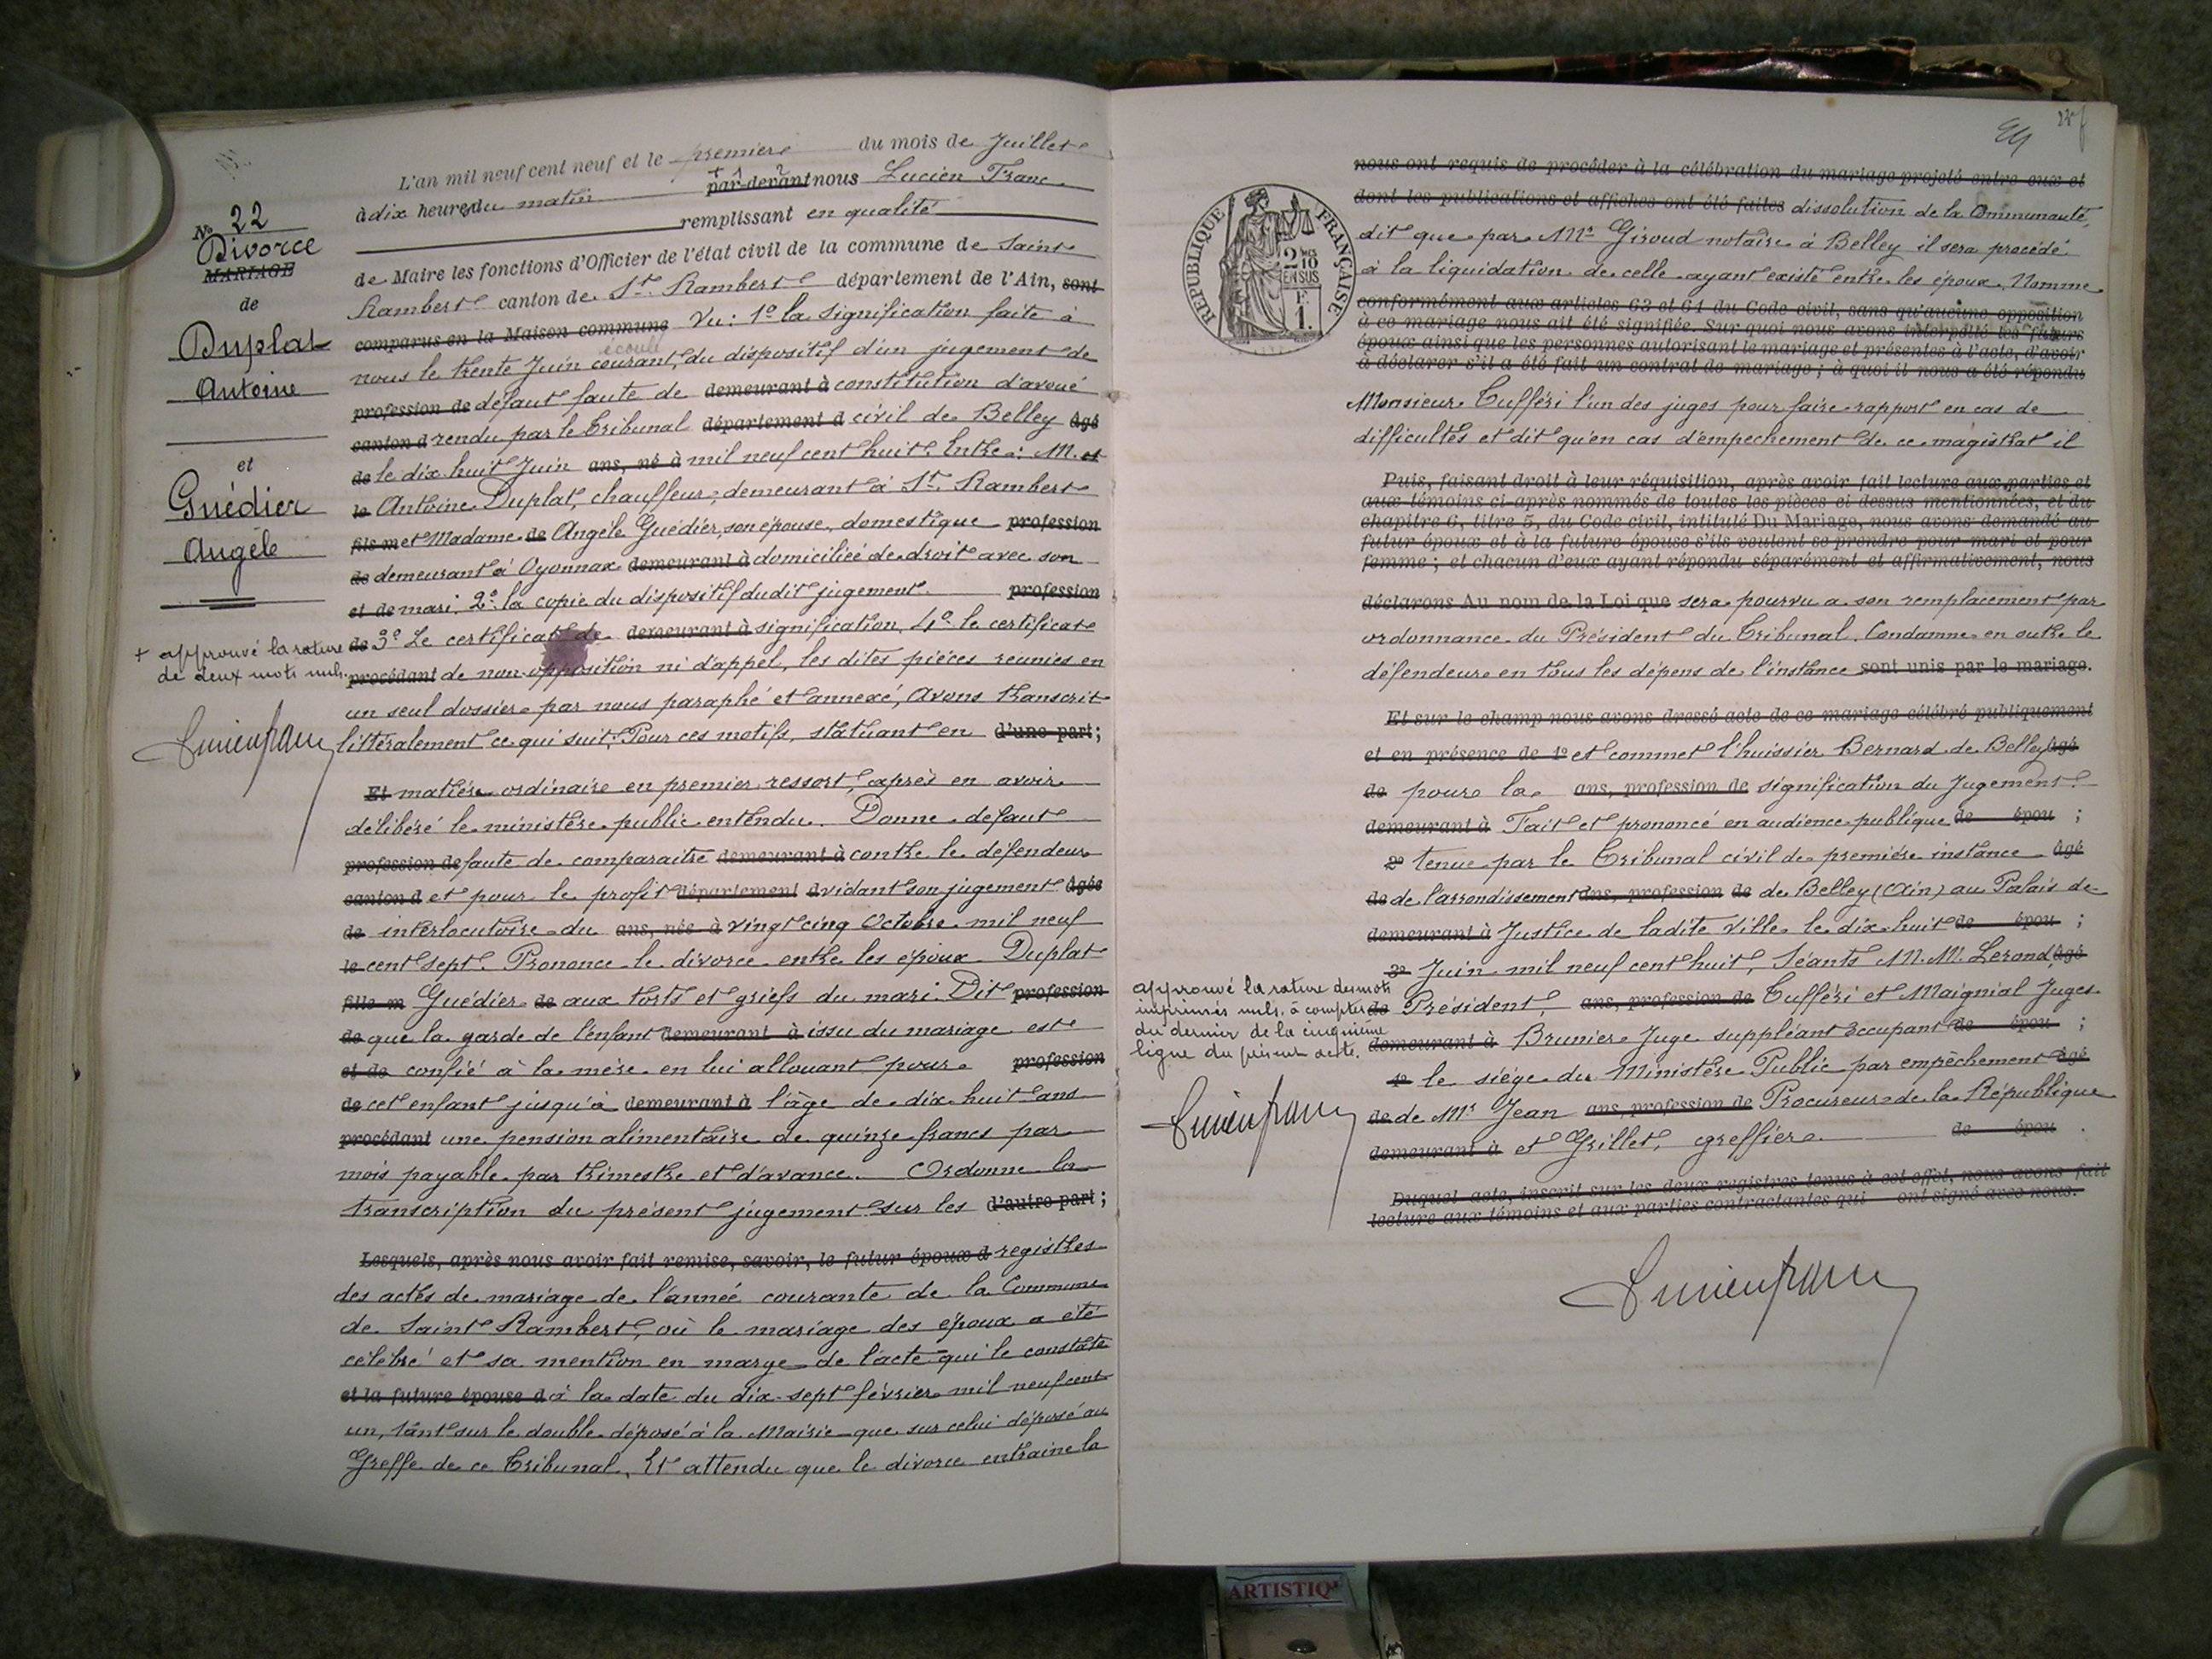 Nº 22
Divorce
MARIAGE
de
Duplat
Antoine
et
Guédier
Angèle
+ approuvé la rature
de deux mots nuls.
L'an mil neuf cent neuf et le premier du mois de Juillet
à dix heures du matin par-devant nous Lucien Franc
remplissant en qualité
de Maire les fonctions d'Officier de l'état civil de la commune de Saint
Rambert canton de St. Rambert département de l'Ain, sont
comparus en la Maison commune Vu: 1º la signification faite à
écoulé
nous le trente Juin courant, du dispositif d'un jugement de
profession de défaut faute de demeurant à constitution d'avoué
canton d rendu par le Tribunal département d civil de Belley âgé
de le dix huit Juin ans, né à mil neuf cent huit. Entre: M. et
le Antoine Duplat, chauffeur, demeurant à St. Rambert
fils m et Madame de Angèle Guédier, son épouse, domestique profession
de demeurant à Oyonnax demeurant à domiciliée de droit avec son
et de mari. 2º la copie du dispositif dudit jugement. profession
de 3º Le certificat de demeurant à signification. 4º le certificat
procédant de non opposition ni d'appel, les dites pièces réunies en
un seul dossier par nous paraphé et annexé, Avons transcrit
littéralement ce qui suit: Pour ces motifs, statuant en d'une part;
Et matière ordinaire en premier ressort, après en avoir
délibéré le ministère public entendu. Donne défaut
profession de faute de comparaitre demeurant à contre le défendeur
canton d et pour le profit département d vidant son jugement âgée
de interlocutoire du ans, née à vingt cinq Octobre mil neuf
le cent sept. Prononce le divorce entre les époux Duplat
fille m Guédier de aux torts et griefs du mari. Dit profession
de que la garde de l'enfant demeurant à issu du mariage est
et de confié à la mère en lui allouant pour profession
de cet enfant jusqu'à demeurant à l'âge de dix huit ans
procédant une pension alimentaire de quinze francs par
mois payable par trimestre et d'avance. Ordonne la
transcription du présent jugement sur les d'autre part;
Lesquels, après nous avoir fait remise, savoir, le futur époux d registres
des actes de mariage de l'année courante de la Commune
de Saint Rambert, où le mariage des époux a été
célébré et sa mention en marge de l'acte qui le constate
et la future épouse d à la date du dix-sept février mil neuf cent
un, tant sur le double déposé à la Mairie que sur celui déposé au
Greffe de ce Tribunal. Et attendu que le divorce entraine la
RÉPUBLIQUE FRANÇAISE
2/10
EN SUS
F.
1.
nous ont requis de procéder à la célébration du mariage projeté entre eux et
dont les publications et affiches ont été faites dissolution de la Communauté,
dit que par Mr Giroud notaire à Belley il sera procédé
à la liquidation de celle ayant existé entre les époux. Nomme
conformément aux articles 63 et 64 du Code civil, sans qu'aucune opposition
à ce mariage nous ait été signifiée. Sur quoi nous avons interpellé les futurs
époux ainsi que les personnes autorisant le mariage et présentes à l'acte, d'avoir
à déclarer s'il a été fait un contrat de mariage; à quoi il nous a été répondu
Monsieur Tufféri l'un des juges pour faire rapport en cas de
difficultés et dit qu'en cas d'empechement de ce magistrat il
Puis, faisant droit à leur réquisition, après avoir fait lecture aux parties et
aux témoins ci-après nommés de toutes les pièces ci-dessus mentionnées, et du
chapitre 6, titre 5, du Code civil, intitulé Du Mariage, nous avons demandé au
futur époux et à la future épouse s'ils veulent se prendre pour mari et pour
femme; et chacun d'eux ayant répondu séparément et affirmativement, nous
déclarons Au nom de la Loi que sera pourvu a son remplacement par
ordonnance du Président du Tribunal. Condamne en outre le
défendeur en tous les dépens de l'instance sont unis par le mariage.
Et sur le champ nous avons dressé acte de ce mariage célébré publiquement
et en présence de 1º et commet l'huissier Bernard de Belley âgé
de pour la ans, profession de signification du Jugement.
demeurant à Fait et prononcé en audience publique de épou ;
2º tenue par le Tribunal civil de première instance âgé
de de l'arrondissement ans, profession de de Belley (Ain) au Palais de
demeurant à Justice de ladite Ville le dix huit de épou ;
3º Juin mil neuf cent huit, Séants M.M. Lerond, âgé
de Président, ans, profession de Tufféri et Maignial Juges
demeurant à Brunier Juge suppléant occupant de épou ;
4º le siége du Ministère Public par empèchement âgé
de de Mr Jean ans, profession de Procureur de la République
demeurant à et Grillet, greffier. de épou .
Duquel acte, inscrit sur les deux registres tenus à cet effet, nous avons fait
lecture aux témoins et aux parties contractantes qui ont signé avec nous.
approuvé la rature des mots
imprimés nuls, à compter
du dernier de la cinquième
ligne du présent acte.
ARTISTIQ